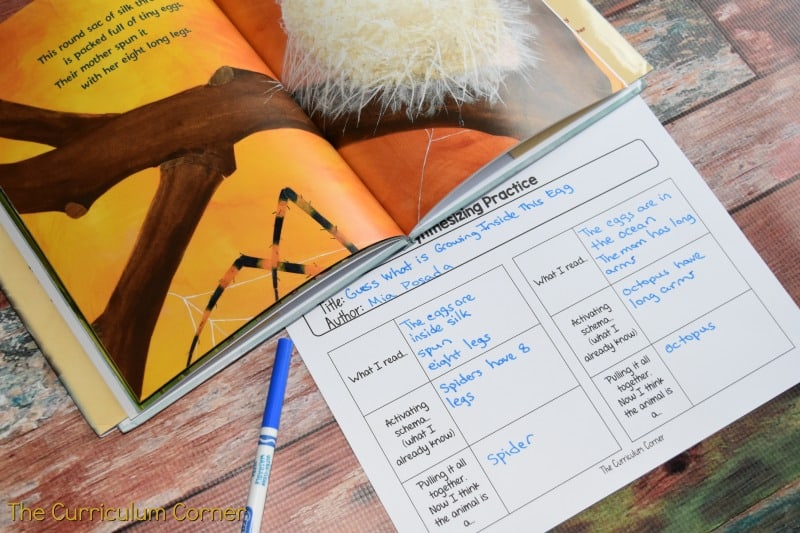 This round sac of silk
is packed full of tiny eggs.
Their mother spun it
with her eight long legs.
Practice
Title: Guess What is Growing Inside This Egg
Author: Mia Posada
What I read...
The eggs are
inside silk
spun
eight legs
Activating
schema...
(what I
already know)
Spiders have 8
legs
Pulling it all
together.
Now I think
the animal is
a...
Spider
What I read...
The eggs are in
the ocean
The mom has long
arms
Activating
schema...
(what I
already know)
Octopus have
long arms
Pulling it all
together.
Now I think
the animal is
a...
octopus
The Curriculum Corner
The Curriculum Corner